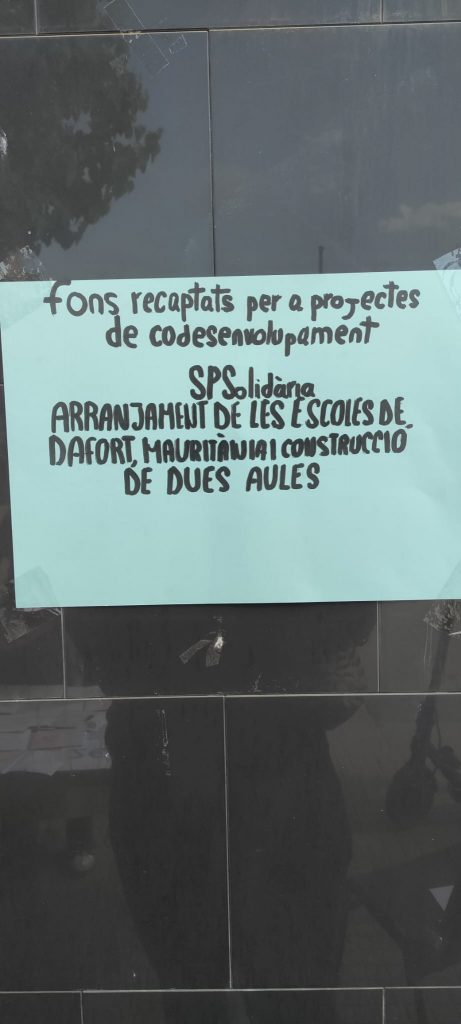 fons recaptats per a projectes
de codesenvolupament
SPSolidària
ARRANJAMENT DE LES ESCOLES DE
DAFORT, MAURITÀNIA I CONSTRUCCIÓ
DE DUES AULES